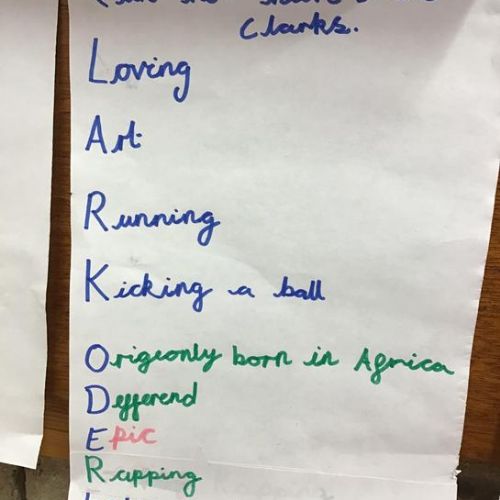 Clarks.
Loving
Art
Running
Kicking a ball
Origeonly born in Africa
Defferend
Epic
Rapping